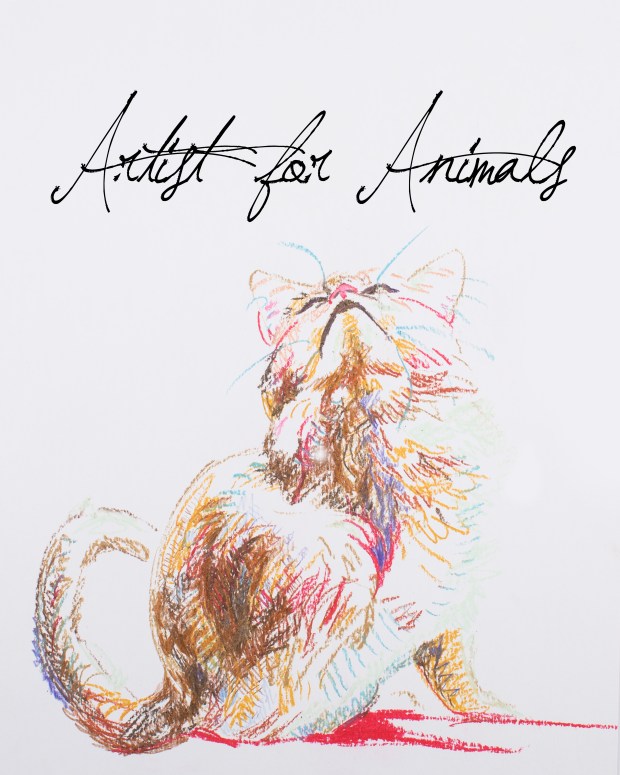 Artist for Animals